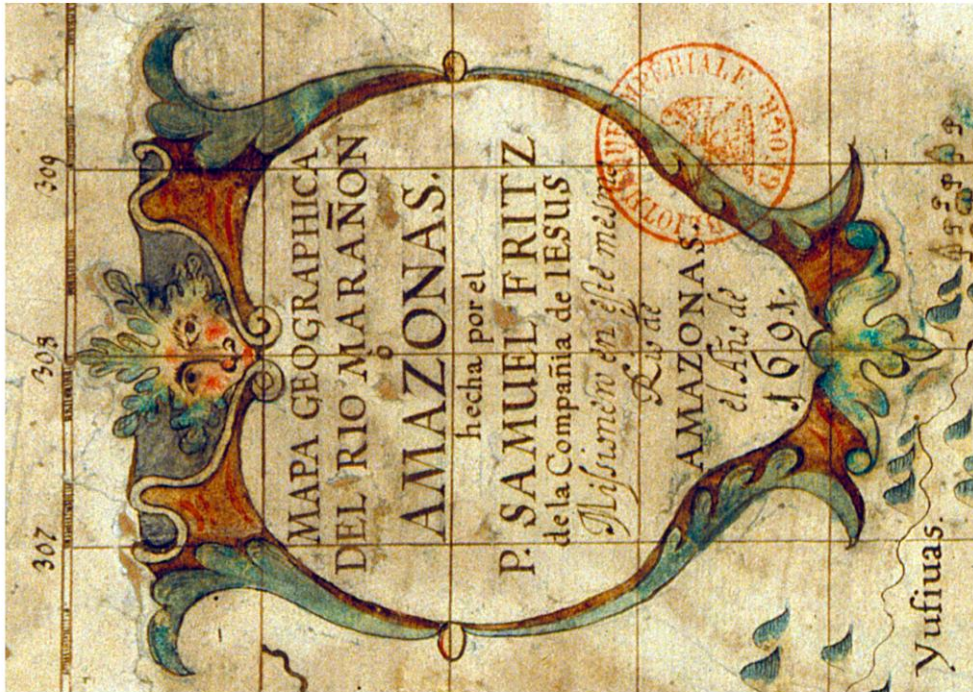 307 308 309
MAPA GEOGRAPHICA
DEL RIO MARAÑON
o
AMAZONAS.
hecha por el
P. SAMUEL FRITZ
de la Compañia de IESUS
Missionero en este mesmo
Rio de
AMAZONAS.
el Año de
1691.
IMPERIALE
Yusiuas.